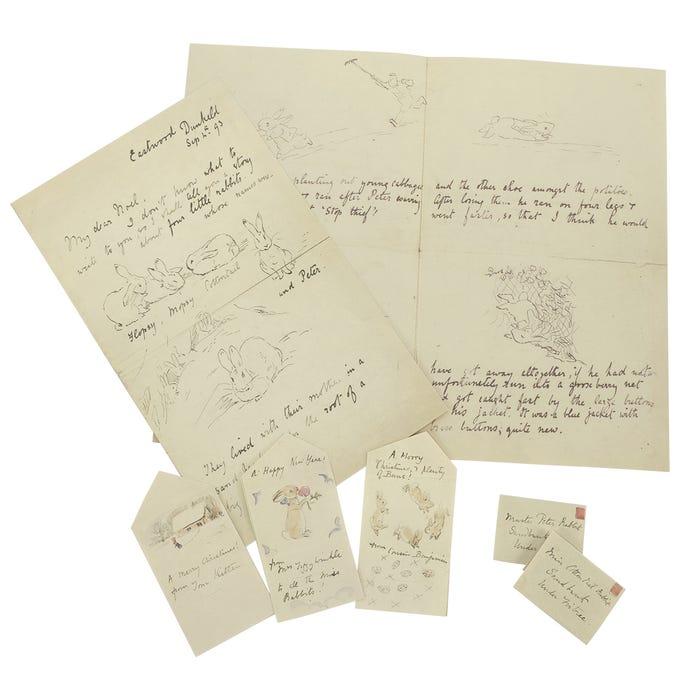 Eastwood Dunkeld
Sep 4th 93
My dear Noel,
I don't know what to
write to you so I shall tell you a story
about four little rabbits
whose names were
Flopsy, Mopsy Cottontail
and Peter.
They lived with their mother in a
sand
the root of a
planting out young cabbages
ran after Peter waving
& "Stop thief"!
and the other shoe amongst the potatoes.
After losing them he ran on four legs &
went faster, so that I think he would
have got away altogether, if he had not
unfortunately run into a gooseberry net
& got caught fast by the large buttons
his jacket. It was a blue jacket with
buttons; quite new.
A Merry Christmas
from Tom Kitten
A Happy New Year!
from
Mrs Tiggy Winkle
to all the Miss
Rabbits!
A Merry
Christmas, & plenty
of Buns!
from Cousin Benjamin
Master Peter Rabbit
Sandbank
Under
Miss Cottontail Rabbit
Sandbank
Under Firtree.